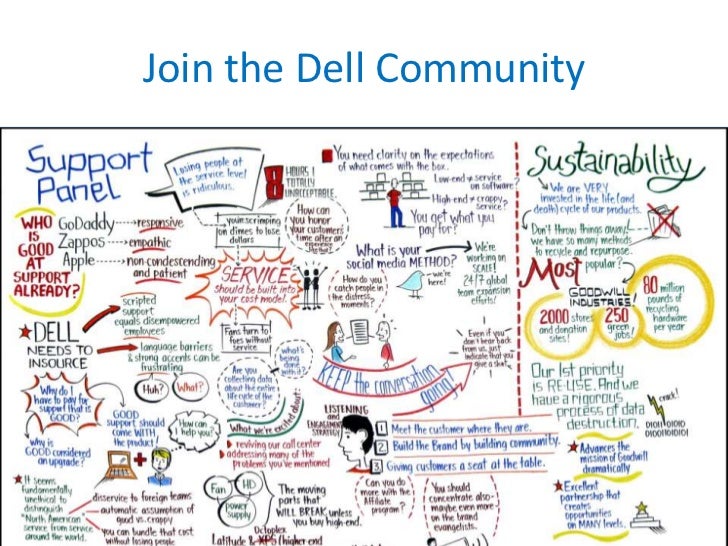 Join the Dell Community
Support
Panel
Losing people at
the service level
is ridiculous.
8 HOURS!
TOTALLY
UNACCEPTABLE.
WHO
IS
GOOD
AT
SUPPORT
ALREADY?
GoDaddy
responsive
Zappos
empathic
Apple
non-condescending
and patient
your scrimping
on dimes to lose
dollars
How can
you honor
your customers'
time after an
SERVICE
should be built into
your cost model.
scripted
support
equals disempowered
employees
DELL
NEEDS TO
INSOURCE
language barriers
& strong accents can be
frustrating
Fans turn to
foes without
service
Huh?
What?
Why do I
have to pay for
support that is
GOOD?
Why is
GOOD considered
an upgrade?
GOOD
support should
come WITH
the product!
How can
I help you?
Are you
collecting data
about the entire
life cycle of the
customer?
what's
being
done
with it?
What we're excited about:
reviving our call center
addressing many of the
problems you've mentioned
It seems
fundamentally
unethical to
distinguish
"North American"
service from service
around the world.
disservice to foreign teams
automatic assumption of
good vs. crappy
you can bundle that cost
without losing people
Fan
HD
Power
Supply
Octoplex
The moving
parts that
WILL BREAK unless
you buy high-end.
Latitude & XPS (higher end
You need clarity on the expectations
of what comes with the box.
Low-end ≠ service
on software?
High-end ≠ crappy
service?
You get what you
pay for?
What is your
social media METHOD?
We're
working on
SCALE!
24/7 global
team expansion
efforts!
we're
here!
How do you
catch people in
the distress
moments?
Even if you
don't hear back
from us, just
indicate that you
still care.
KEEP the conversation going!
LISTENING
and
ENGAGEMENT
STRATEGY
1 Meet the customer where they are.
2 Build the Brand by building community.
3 Giving customers a seat at the table.
Can you do
more with the
Affiliate
program?
You should
concentrate also-
maybe even more
on the brand
evangelists.
Sustainability
We are VERY
invested in the life (and
death) cycle of our products.
Don't throw things away!
we have so many methods
to recycle and repurpose.
Most popular?
GOODWILL
INDUSTRIES!
2000 stores
and donation
sites!
250
green
jobs!
80 million
pounds of
recycling
hardware
per year
Our 1st priority
is RE-USE. And we
have a rigorous
process of data
destruction.
crack!
Advances the
mission of Goodwill
dramatically
Excellent
partnership that
creates
opportunities
on MANY levels.